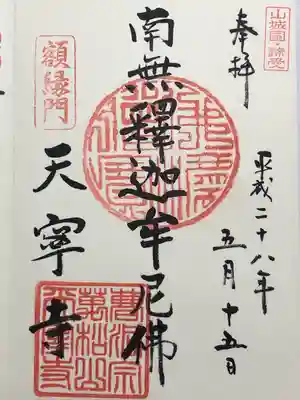 奉拝
平成二十八年
五月十五日
南無釋迦牟尼佛
額縁門
天寧寺
曹洞宗
萬松山
天寧寺